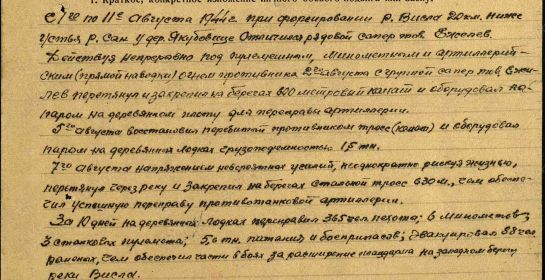 1. Краткое, конкретное изложение личного боевого подвига или заслуг.
С 1го по 11е Августа 1944 г. при форсировании р. Висла 20 клм. ниже
устья р. Сан у дер. Якубовице Отличился рядовой сапер тов.
Действуя непрерывно под пулеметным, минометным и артиллерий-
ским (прямой наводки) огнем противника 2го августа с группой сапер тов.
перетянул и закрепил на берегах 600 метровый канат и оборудовал
паром на деревянном плоту для переправы артиллерии.
5го Августа восстановил перебитый противником трос (канат) и оборудовал
паром на деревянных лодках грузоподъемностью 15 тн.
7го августа напряжением невероятных усилий, неоднократно рискуя жизнью,
перетянул через реку и закрепил на берегах стальной трос 630 м, чем обеспе-
чил успешную переправу противотанковой артиллерии.
За 10 дней на деревянных лодках переправил 365 чел. пехоты; 6 минометов;
3 станковых пулемета; тн. питания и боеприпасов; эвакуировал 88 чел
раненых, чем обеспечил части в боях за расширение плацдарма на западном берегу
реки Висла.